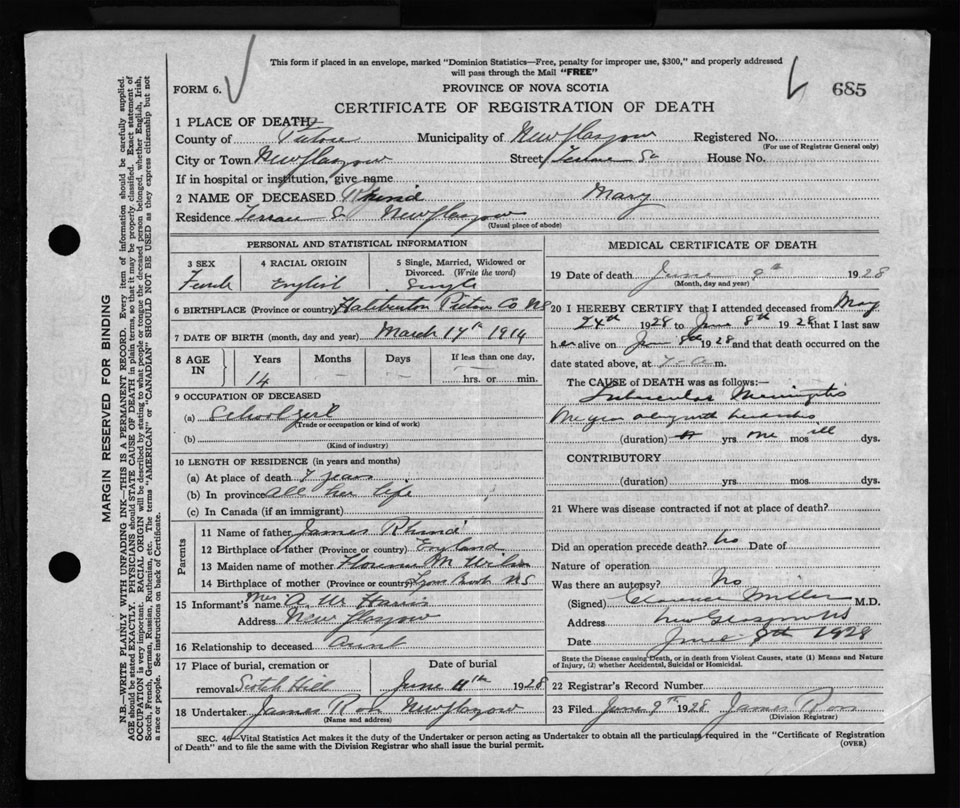 This form if placed in an envelope, marked "Dominion Statistics—Free, penalty for improper use, $300," and properly addressed
will pass through the Mail "FREE"
FORM 6.
PROVINCE OF NOVA SCOTIA
685
CERTIFICATE OF REGISTRATION OF DEATH
1 PLACE OF DEATH
County of Pictou Municipality of New Glasgow Registered No.
(For use of Registrar General only)
City or Town New Glasgow Street St House No.
If in hospital or institution, give name
2 NAME OF DECEASED Rhind Mary
Residence Terrace St New Glasgow
(Usual place of abode)
PERSONAL AND STATISTICAL INFORMATION
3 SEX 4 RACIAL ORIGIN 5 Single, Married, Widowed or
Divorced. (Write the word)
Female English Single
6 BIRTHPLACE (Province or country) Haliburton Pictou Co NS
7 DATE OF BIRTH (month, day and year) March 17th 1914
8 AGE IN Years Months Days If less than one day,
14 — — hrs. or min.
9 OCCUPATION OF DECEASED
(a) School girl
(Trade or occupation or kind of work)
(b)
(Kind of industry)
10 LENGTH OF RESIDENCE (in years and months)
(a) At place of death 7 years
(b) In province All her life
(c) In Canada (if an immigrant)
Parents
11 Name of father James Rhind
12 Birthplace of father (Province or country) England
13 Maiden name of mother Florence M Wilson
14 Birthplace of mother (Province or country) Lyons Brook NS
15 Informant's name Mrs A. W. Harris
Address New Glasgow
16 Relationship to deceased Aunt
17 Place of burial, cremation or Date of burial
removal Scotch Hill June 11th 1928
18 Undertaker James Ross New Glasgow
(Name and address)
MEDICAL CERTIFICATE OF DEATH
19 Date of death June 9th 1928
(Month, day and year)
20 I HEREBY CERTIFY that I attended deceased from May
24th 1928 to June 8th 1928 that I last saw
her alive on June 8th 1928 and that death occurred on the
date stated above, at 7 a m.
The CAUSE of DEATH was as follows:—
Tubercular Meningitis
One year along with headaches
(duration) yrs. one mos. ill dys.
CONTRIBUTORY
(duration) yrs. mos. dys.
21 Where was disease contracted if not at place of death?
Did an operation precede death? No Date of
Nature of operation
Was there an autopsy? No
(Signed) Clarence Miller M.D.
Address New Glasgow NS
Date June 9th 1928
State the Disease causing Death, or in death from Violent Causes, state (1) Means and Nature
of Injury, (2) whether Accidental, Suicidal or Homicidal.
22 Registrar's Record Number
23 Filed June 9th 1928 James Ross
(Division Registrar)
SEC. 46—Vital Statistics Act makes it the duty of the Undertaker or person acting as Undertaker to obtain all the particulars required in the "Certificate of Registration
of Death" and to file the same with the Division Registrar who shall issue the burial permit. (OVER)
MARGIN RESERVED FOR BINDING
N.B.—WRITE PLAINLY WITH UNFADING INK—THIS IS A PERMANENT RECORD. Every item of information should be carefully supplied.
AGE should be stated EXACTLY. PHYSICIANS should STATE CAUSE OF DEATH in plain terms, so that it may be properly classified. Exact statement of
OCCUPATION is very important. RACIAL ORIGIN will be described by stating to what people or tongue the deceased person belonged, whether English, Irish,
Scotch, French, German, Russian, Ruthenian, etc. The terms "AMERICAN" or "CANADIAN" SHOULD NOT BE USED as they express citizenship but not
a race or people. See instructions on back of Certificate.